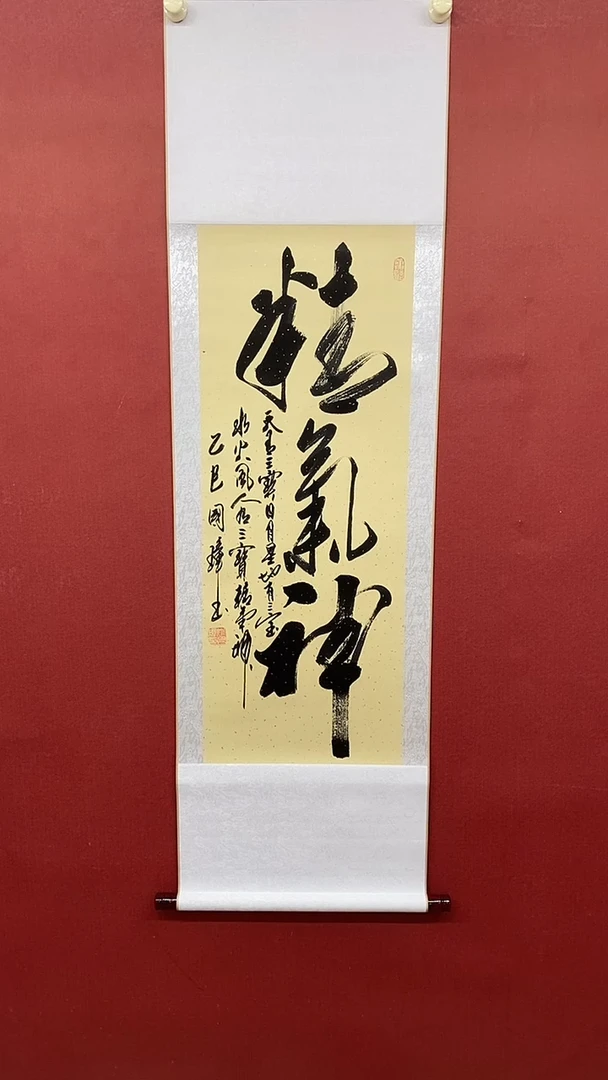 精氣神
天有三寶日月星地有三宝
水火風人有三寶精氣神
乙巳國璋玉